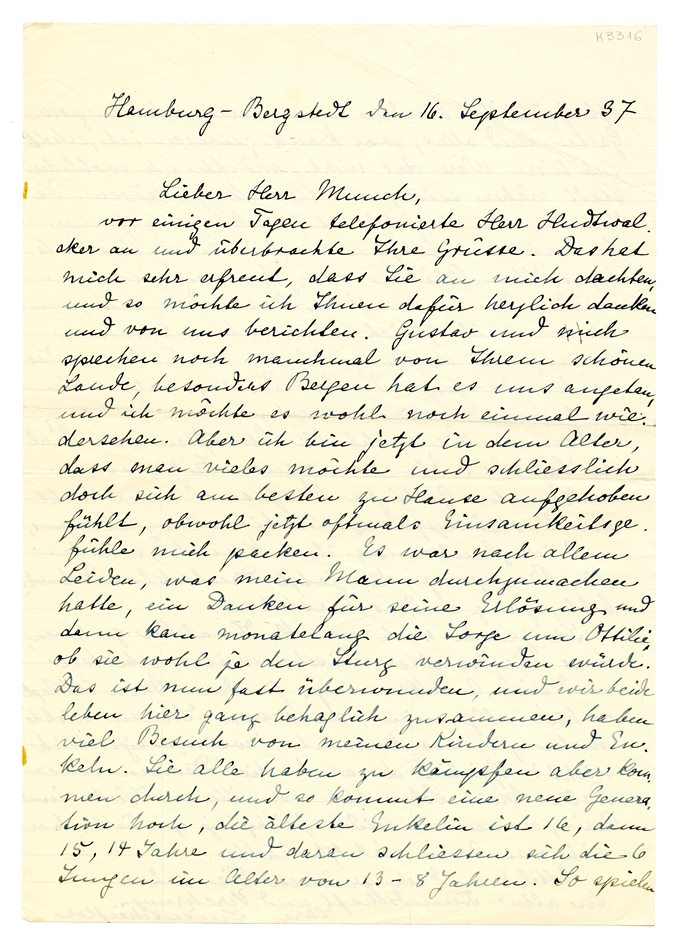 K3316
Hamburg-Bergstedt den 16. September 37
Lieber Herr Munch,
vor einigen Tagen telefonierte Herr Hudtwal-
cker an und überbrachte Ihre Grüsse. Das hat
mich sehr erfreut, dass Sie an mich dachten,
und so möchte ich Ihnen dafür herzlich danken
und von uns berichten. Gustav und mich
sprechen noch manchmal von Ihrem schönen
Lande, besonders Bergen hat es uns angetan,
und ich möchte es wohl noch einmal wie-
dersehen. Aber ich bin jetzt in dem Alter,
dass man vieles möchte und schliesslich
doch sich am besten zu Hause aufgehoben
fühlt, obwohl jetzt oftmals Einsamkeitsge-
fühle mich packen. Es war nach allem
Leiden, was mein Mann durchzumachen
hatte, ein Danken für seine Erlösung und
dann kam monatelang die Sorge um Ottilie,
ob sie wohl je den Sturz verwinden würde.
Das ist nun fast überwunden, und wir beide
leben hier ganz behaglich zusammen, haben
viel Besuch von meinen Kindern und En-
keln. Sie alle haben zu kämpfen aber kom-
men durch, und so kommt eine neue Genera-
tion hoch, die älteste Enkelin ist 16, dann
15, 14 Jahre und daran schliessen sich die 6
Jungen im Alter von 13-8 Jahren. So spielen